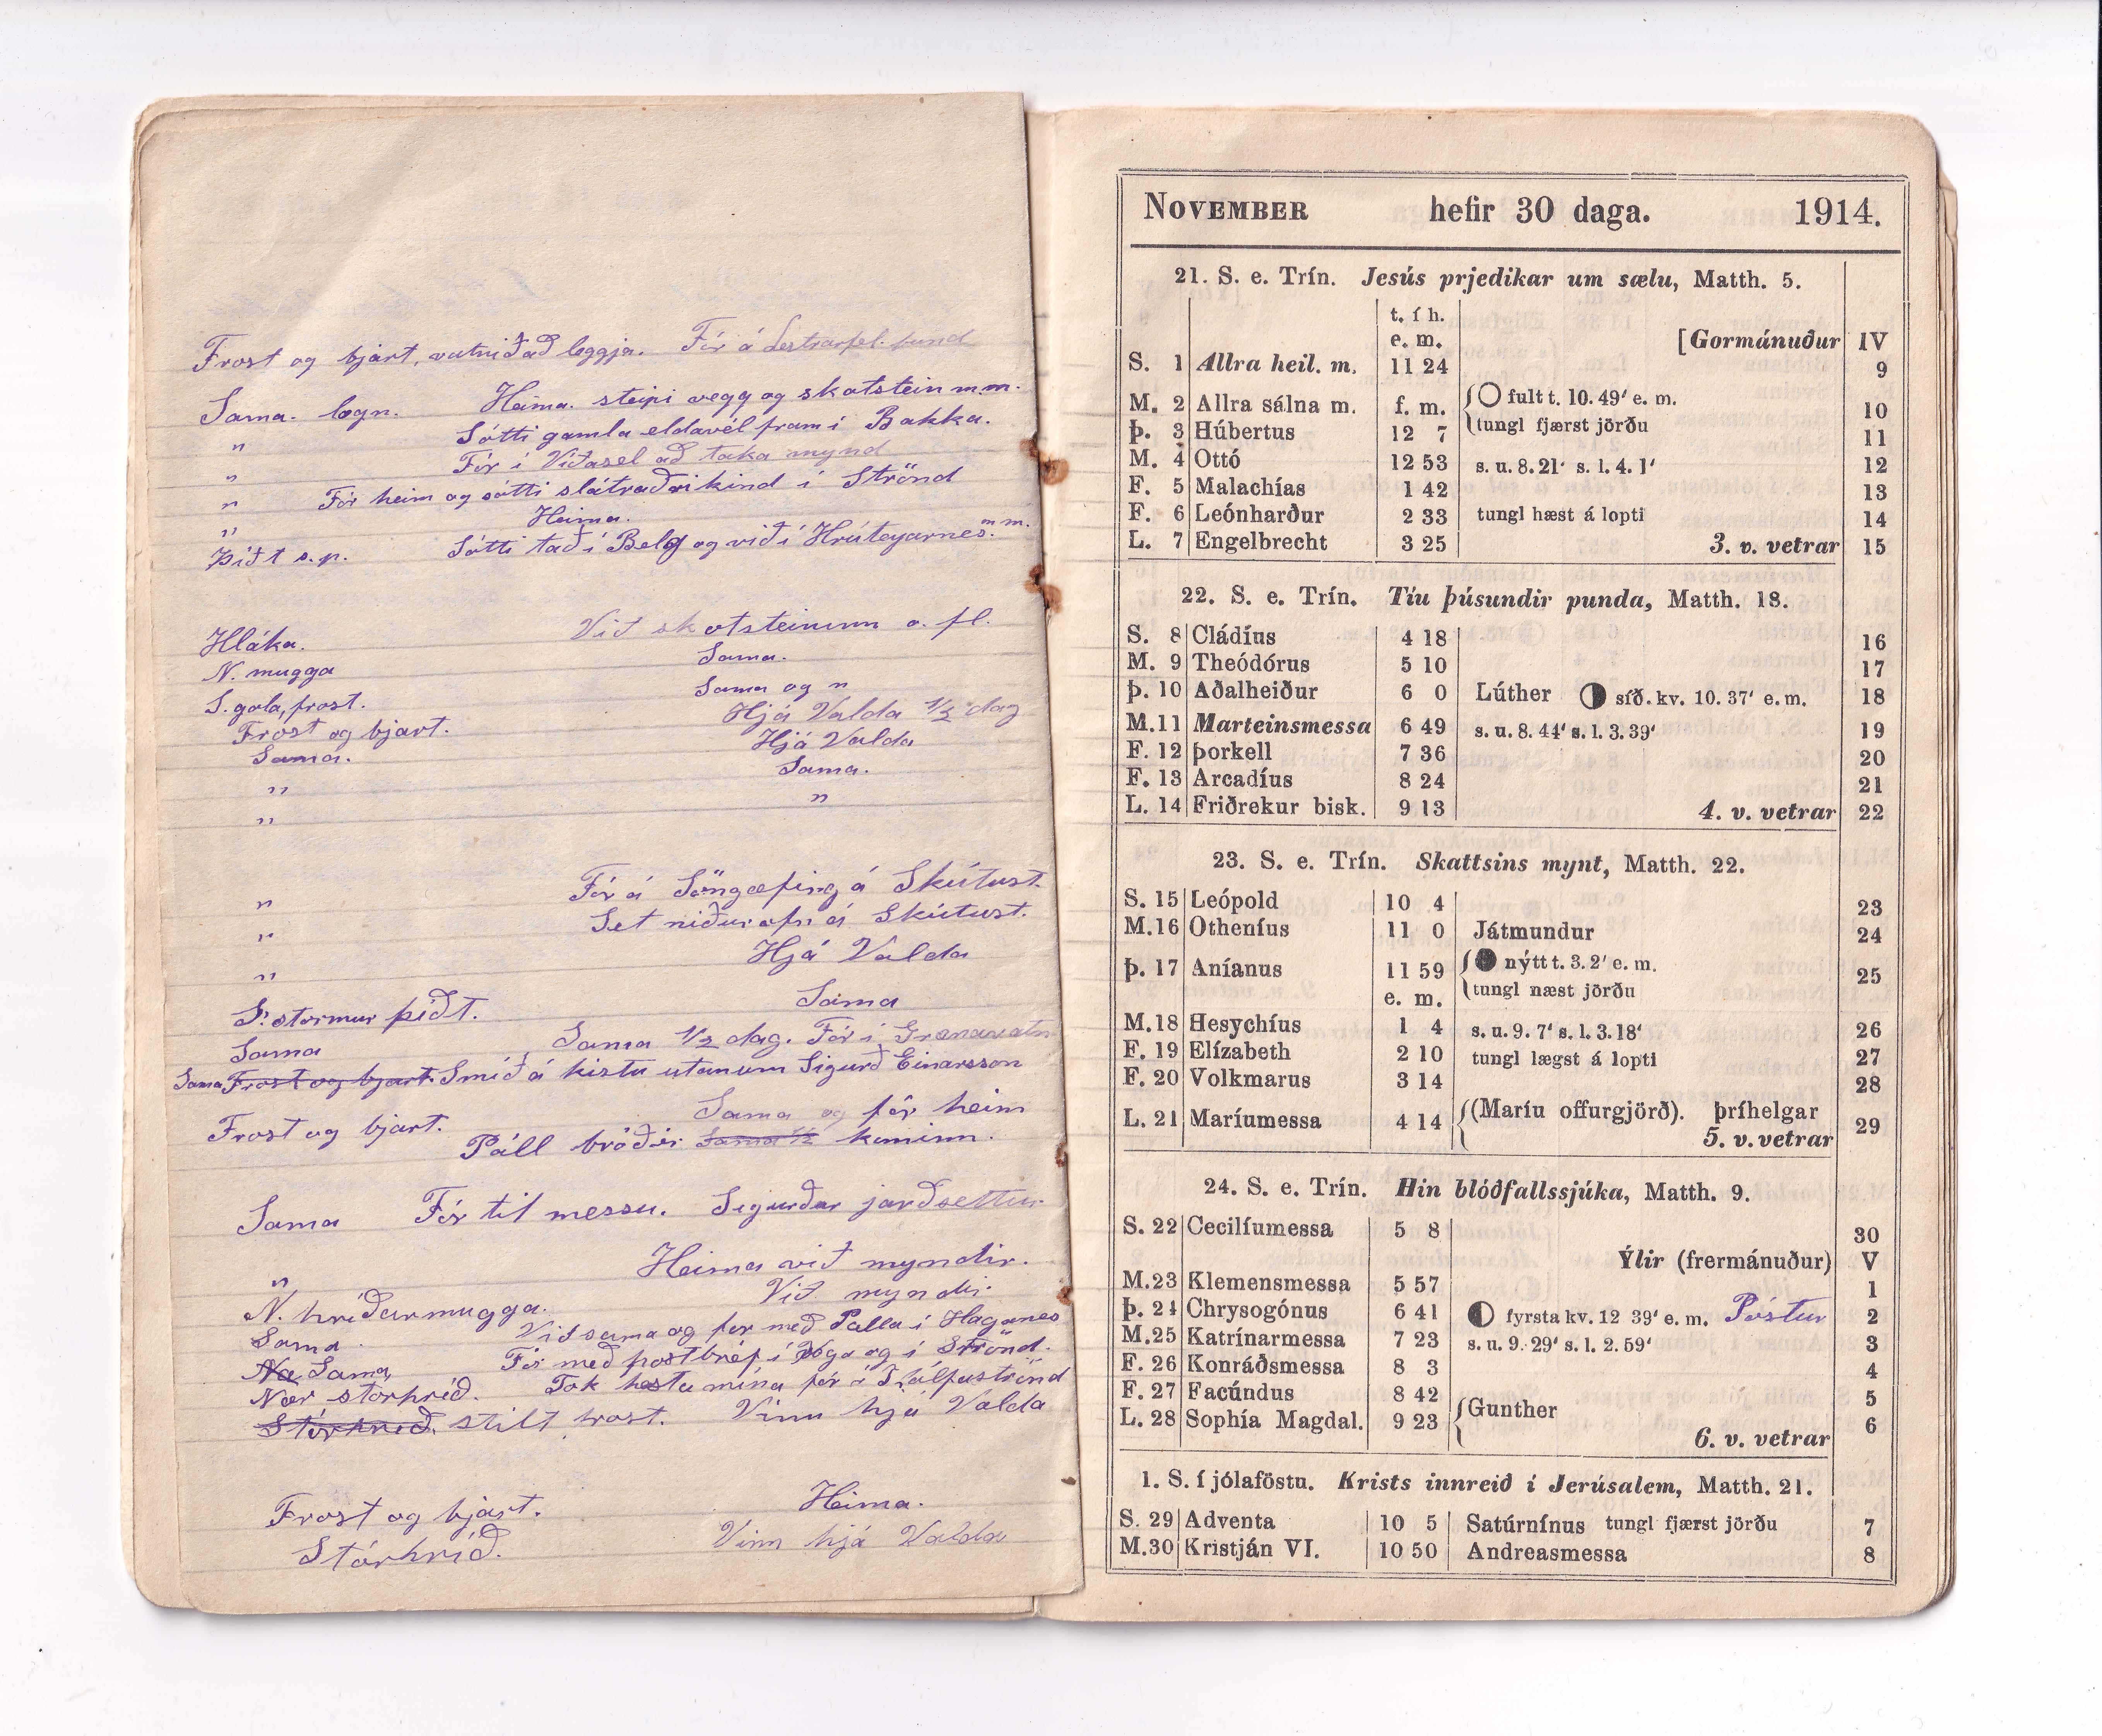 Frost og bjart, vatnið að leggja. Fór á Lestrarfél. fund
Sama. logn. Heima. steipi vegg og skotstein m.m.
" Sótti gamla eldavél fram í Bakka.
" Fór í Víðasel að taka mynd
" Fór heim og sótti slátraðri kind í Strönd
" Heima.
Þíðt s.p. Sótti tað í Belg og við í Hrúteyarnes. m m.
Hláka. Við skotsteininn o. fl.
N. mugga Sama.
S. gola, frost. Sama og n
Frost og bjart. Hjá Valda 1/2 dag
Sama. Hjá Valda
" Sama.
" "
" Fór á Söngæfing á Skútust.
" Set niður ofn á Skútust.
" Hjá Valda
S. stormur þíðt. Sama
Sama Sama 1/2 dag. Fór í Grænavatn
Sama Frost og bjart. Smíða kistu utanum Sigurð Einarsson
Frost og bjart. Sama og fór heim
Páll bróðir Sama 1/2 kominn.
Sama Fór til messu. Sigurður jarðsettur
" Heima við myndir.
N. hríðarmugga. Við myndir
Sama Við sama og fer með Palla í Haganes
Na Sama Fór með postbréf í Voga og í Strönd.
Nær stórhríð. Tók hesta mína fór í Kálfaströnd
Stórhríð, stilt frost. Vinn hjá Valda
Frost og bjart. Heima.
Stórhríð. Vinn hjá Valda
NOVEMBER hefir 30 daga. 1914.
21. S. e. Trín. Jesús prjedikar um sælu, Matth. 5.
t. í h.
e. m. [Gormánuður IV
S. 1 Allra heil. m. 11 24 9
M. 2 Allra sálna m. f. m. fult t. 10. 49' e. m. 10
tungl fjærst jörðu
Þ. 3 Húbertus 12 7 11
M. 4 Ottó 12 53 s. u. 8. 21' s. l. 4. 1' 12
F. 5 Malachías 1 42 13
F. 6 Leónharður 2 33 tungl hæst á lopti 14
L. 7 Engelbrecht 3 25 3. v. vetrar 15
22. S. e. Trín. Tíu þúsundir punda, Matth. 18.
S. 8 Cládíus 4 18 16
M. 9 Theódórus 5 10 17
Þ. 10 Aðalheiður 6 0 Lúther síð. kv. 10. 37' e. m. 18
M. 11 Marteinsmessa 6 49 s. u. 8. 44' s. l. 3. 39' 19
F. 12 Þorkell 7 36 20
F. 13 Arcadíus 8 24 21
L. 14 Friðrekur bisk. 9 13 4. v. vetrar 22
23. S. e. Trín. Skattsins mynt, Matth. 22.
S. 15 Leópold 10 4 23
M. 16 Otheníus 11 0 Játmundur 24
Þ. 17 Aníanus 11 59 nýtt t. 3. 2' e. m. 25
e. m. tungl næst jörðu
M. 18 Hesychíus 1 4 s. u. 9. 7' s. l. 3. 18' 26
F. 19 Elízabeth 2 10 tungl lægst á lopti 27
F. 20 Volkmarus 3 14 28
L. 21 Maríumessa 4 14 (Maríu offurgjörð). Þríhelgar 29
5. v. vetrar
24. S. e. Trín. Hin blóðfallssjúka, Matth. 9.
S. 22 Cecilíumessa 5 8 30
Ýlir (frermánuður) V
M. 23 Klemensmessa 5 57 1
Þ. 24 Chrysogónus 6 41 fyrsta kv. 12 39' e. m. Póstur 2
M. 25 Katrínarmessa 7 23 s. u. 9. 29' s. l. 2. 59' 3
F. 26 Konráðsmessa 8 3 4
F. 27 Facúndus 8 42 5
L. 28 Sophía Magdal. 9 23 Gunther 6
6. v. vetrar
1. S. í jólaföstu. Krists innreið í Jerúsalem, Matth. 21.
S. 29 Adventa 10 5 Satúrnínus tungl fjærst jörðu 7
M. 30 Kristján VI. 10 50 Andreasmessa 8